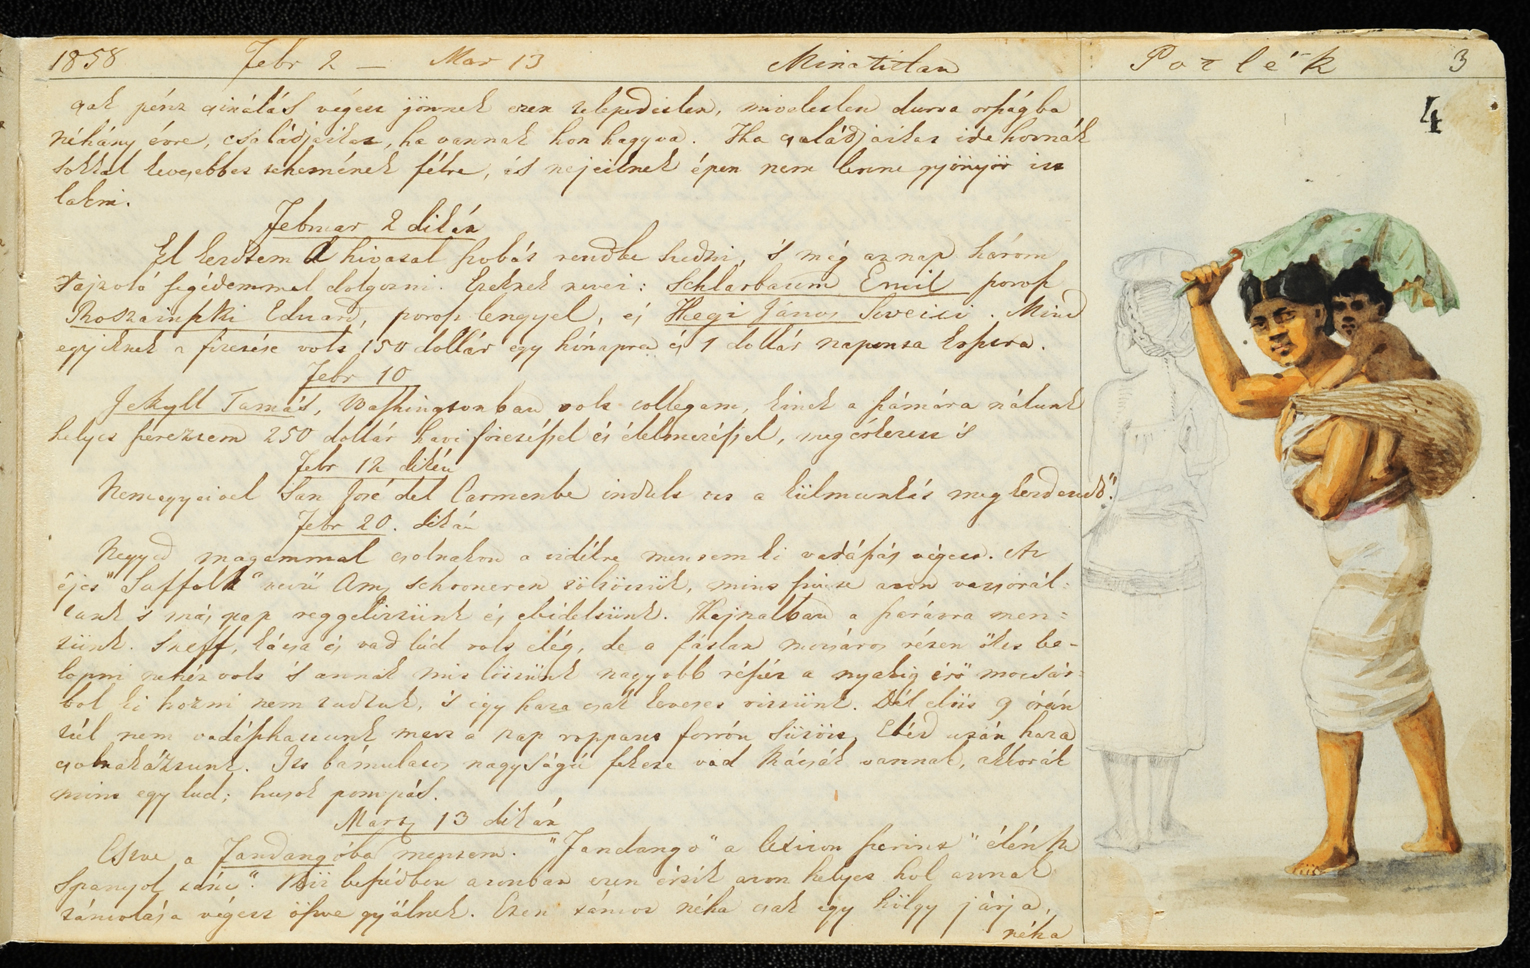 1858 Febr 2 — Mar 13 Minatitlan Pozlék 3
4
csak pénz csinálás végett jönnek ezen telepedésben, miveletlen durva országba
néhány évre, családjaikat, ha vannak hon hagyva. Ha családjaikat ide hoznák
sokkal kevesebbet tehetnének félre, és nejeiknek épen nem lenne gyönyör itt
lakni.
Februar 2 dikán
El kezdtem a hivatal szobát rendbe szedni, 's még aznap három
rajzoló segédemmel dolgozni. Ezeknek nevei: Schlarbaum Emil porosz
Eduard, porosz lengyel, és Hegi János Sveiczi. Mind
egyiknek a fizetése volt 150 dollár egy hónapra és 1 dollár naponta
Febr 10
Jekyll Tamás, Washingtonban volt collegam, kinek a számára nálunk
helyet szereztem 250 dollár havi fizetéssel és élelmezéssel, megérkezett is
Febr 12 dikén
Nemegyeivel San José del Carmenbe indult ez a külmunkás megkezdendő".
Febr 20. dikán
Negyed magammal csolnakon a vidékre mentem ki vadászás végett. Az
éjet "Suffolk" nevű Am. schooneren töltöttük, mint szinte azon vacsorál-
tunk 's más nap reggeliztünk és ebédeltünk. Hajnalban a szavánra men-
tünk. Sneff, kácsa és vad lúd volt elég, de a fástlan mocsáros részen őket be-
lopni nehéz volt 's annak mit lőttünk nagyobb részét a nyakig érő mocsár-
bol ki hozni nem tudtuk, 's így haza csak keveset vittünk. Dél előtt 9 órán
túl nem vadászhattunk mert a nap roppant forrón sütött, Ebéd után haza
csolnakáztunk. Itt bámulatos nagyságú fekete vad kácsák vannak, akkorák
mint egy lud; husok pompás.
Marz 13 dikán
Estve a Fandangóba mentem. "Fandango" a lexicon szerint "élénk
Spanyol tánc". Köz beszédben azonban ezen értik azon helyet hol annak
táncolása végett öszve gyülnek. Ezen táncot néha csak egy hölgy járja,
néha